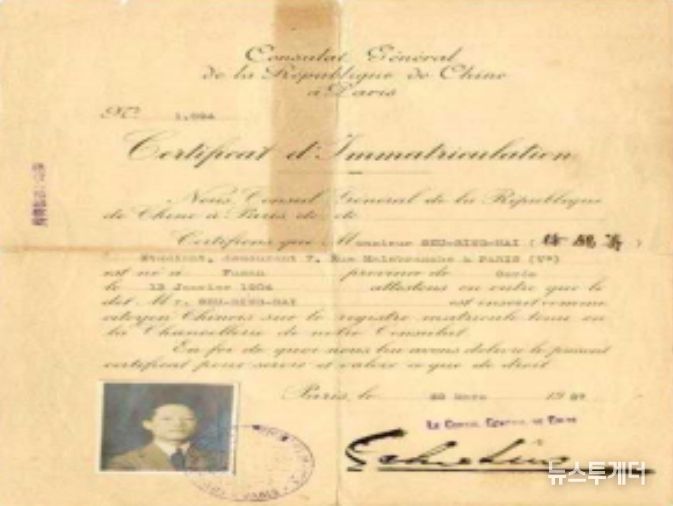 Consulat Général
de la République de Chine
à Paris
Nº
Certificat d'Immatriculation
Nous, Consul Général de la République
de Chine à Paris, etc.
Certifions que Monsieur SEU-RING-HAI (徐嶺海)
Etudiant, demeurant 7, Rue Malebranche à PARIS (Vº)
est né à Fusan province de Corée
le 13 Janvier 1904 attestons en outre que le
dit Mr. SEU-RING-HAI est inscrit comme
citoyen Chinois sur le registre matricule tenu en
la Chancellerie de notre Consulat.
En foi de quoi nous lui avons délivré le présent
certificat pour servir et valoir ce que de droit.
Paris, le Mars 19
Le Consul Général de Chine
뉴스투게더